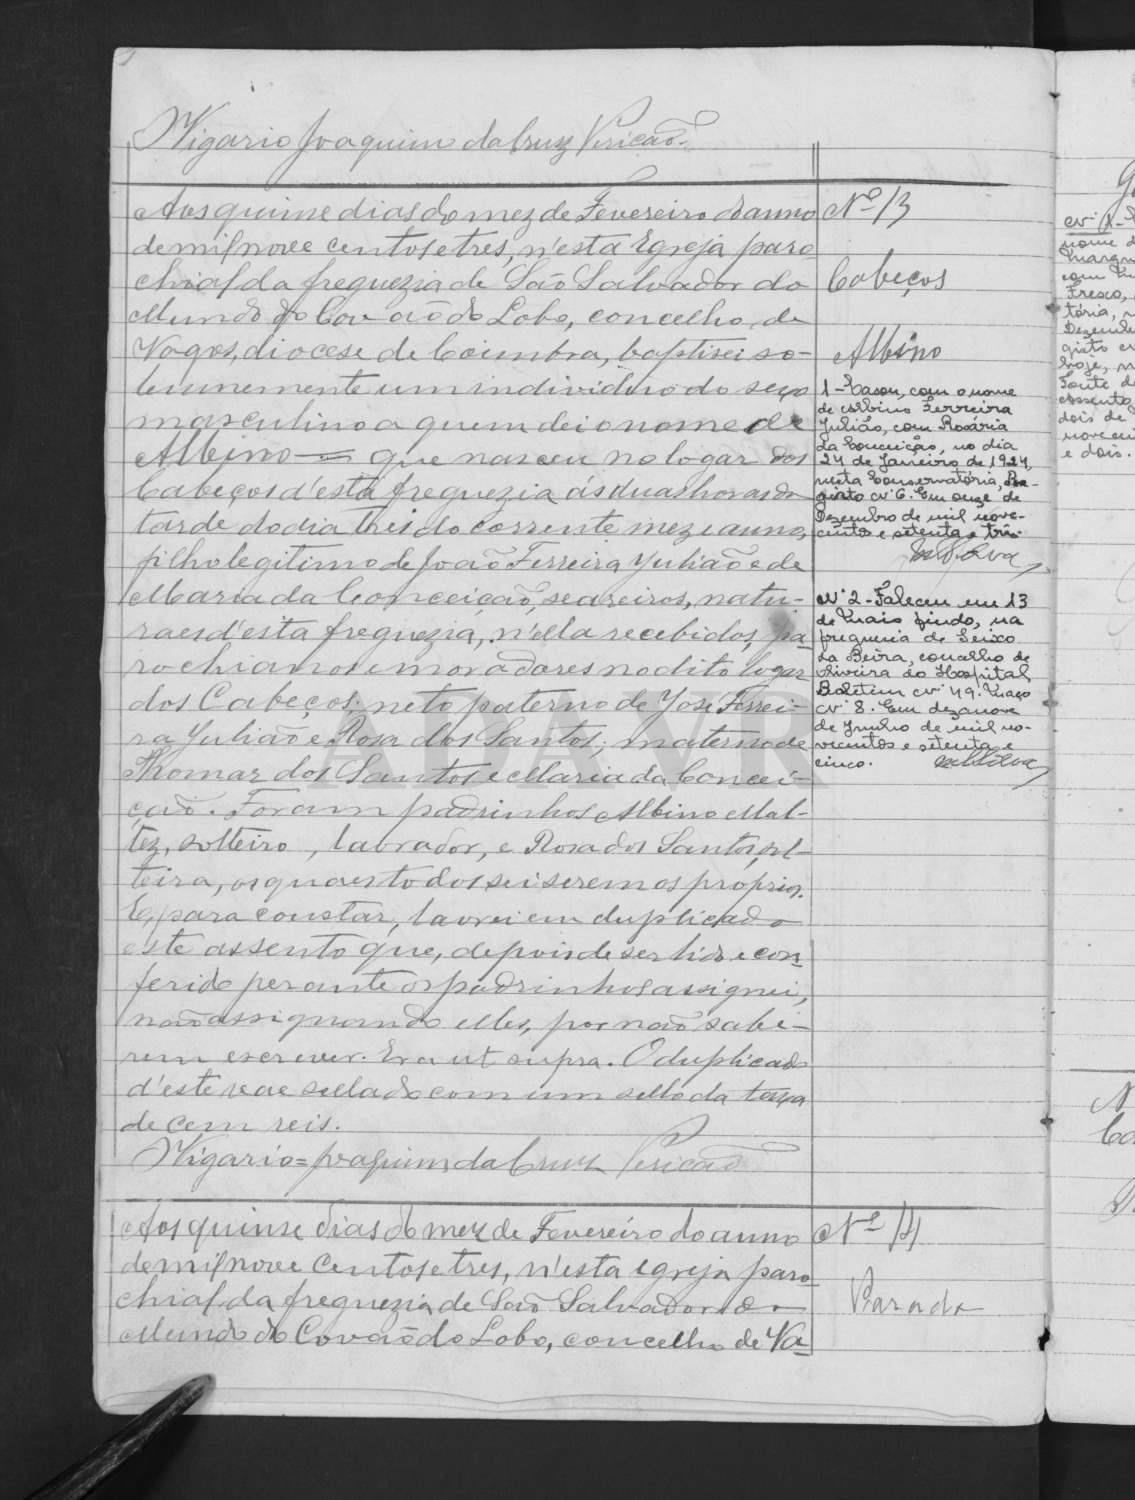 Vigario Joaquim da Cruz Pericão.
Aos quinse dias do mez de Fevereiro do anno
de mil nove centos e tres, n'esta Egreja paro
chial da freguezia de São Salvador do
Mundo do Covão do Lobo, concelho de
Vagos, diocese de Coimbra, baptisei so-
lemnemente um individuo do sexo
masculino a quem dei o nome de
Albino = que nasceu no logar dos
Cabeços d'esta freguezia ás duas horas da
tarde do dia tres do corrente mez e anno,
filho legitimo de João Ferreira Julião e de
Maria da Conceição, seareiros, natu-
raes d'esta freguezia, n'ella recebidos, pa
rochianos e moradores no dito logar
dos Cabeços; neto paterno de José Ferrei-
ra Julião e Rosa dos Santos; materno de
Thomaz dos Santos e Maria da Concei-
ção. Foram padrinhos Albino Mal-
tez, solteiro, lavrador, e Rosa dos Santos, sol-
teira, os quaes todos sei serem os proprios.
E, para constar, lavrei em duplicado
este assento que, depois de ser lido e con
ferido perante os padrinhos assignei,
não assignando elles, por não sabe-
rem escrever. Era ut supra. O duplicado
d'este vae sellado com um sello da taxa
de cem reis.
Vigario = Joaquim da Cruz Pericão
Nº 13
Cabeços
Albino
1 - Casou, com o nome
de Albino Ferreira
Julião, com Rosária
da Conceição, no dia
24 de Janeiro de 1924,
nesta Conservatória, Re-
gisto nº 6. Em onze de
Dezembro de mil nove-
centos e setenta e três.
Nº 2 - Faleceu em 13
de Maio findo, na
freguesia de Seixo
da Beira, concelho de
Oliveira do Hospital,
Boletim nº 49. Maço
nº 8. Em dezanove
de Junho de mil no-
vecentos e setenta e
cinco.
ADAVR
Aos quinse dias do mez de Fevereiro do anno
de mil nove centos e tres, n'esta egreja paro
chial da freguezia de São Salvador do
Mundo do Covão do Lobo, concelho de Va
Nº 14
Parada
nome d
com
Fresco,
tória,
Dezembr
gisto
hoje,
Fonte d
assento
dois de
novecen
e dois.